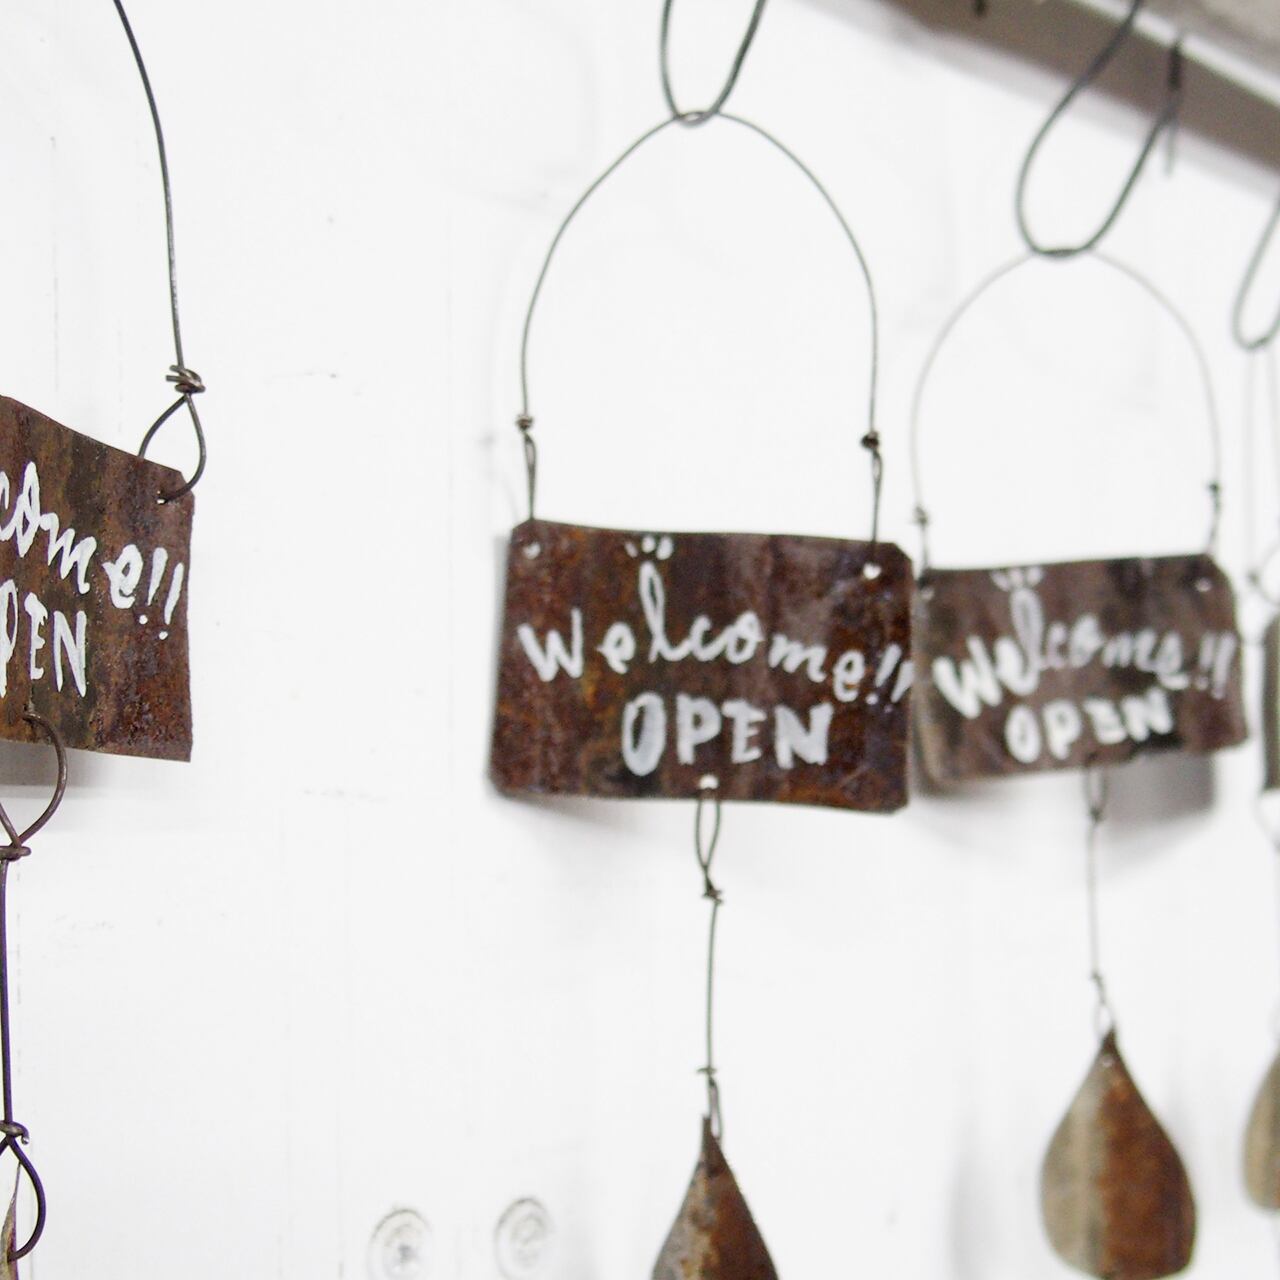 come!!
OPEN
Welcome!!
OPEN
Welcome!!
OPEN